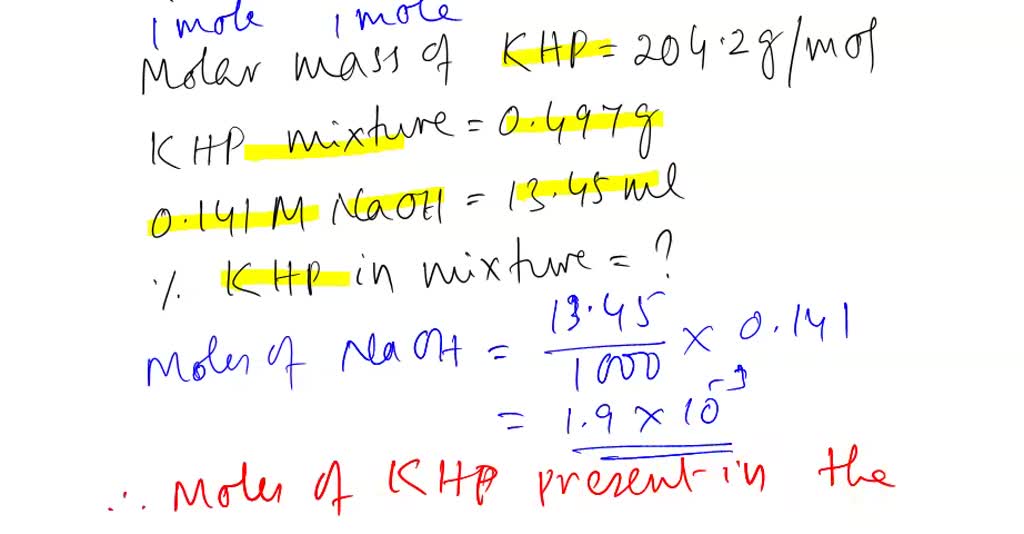 1 mole 1 mole
Molar mass of KHP = 204.2 g/mol
KHP mixture = 0.497 g
0.141 M NaOH = 13.45 ml
% KHP in mixture = ?
Moles of NaOH = 13.45/1000 × 0.141
= 1.9 × 10⁻³
∴ Moles of KHP present in the